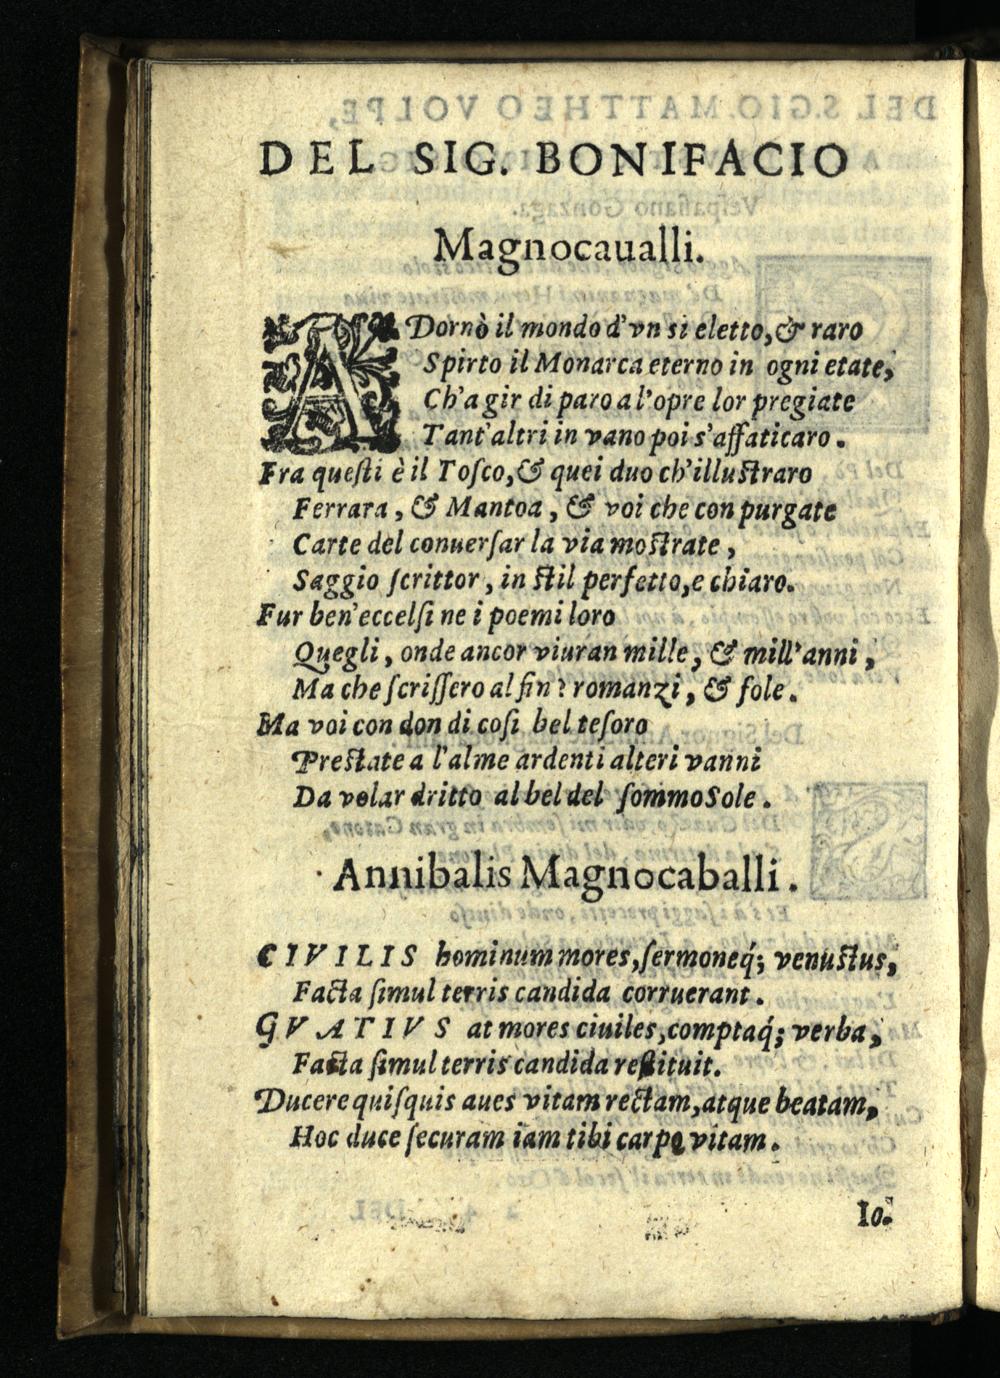 DEL SIG. BONIFACIO
Magnocaualli.
ADornò il mondo d'vn si eletto, & raro
Spirto il Monarca eterno in ogni etate,
Ch'a gir di paro a l'opre lor pregiate
Tant'altri in vano poi s'affaticaro.
Fra queſti è il Toſco, & quei duo ch'illuſtraro
Ferrara, & Mantoa, & voi che con purgate
Carte del conuerſar la via moſtrate,
Saggio ſcrittor, in ſtil perfetto, e chiaro.
Fur ben'eccelſi ne i poemi loro
Quegli, onde ancor viuran mille, & mill'anni,
Ma che ſcriſſero al fin? romanzi, & fole.
Ma voi con don di coſi bel teſoro
Preſtate a l'alme ardenti alteri vanni
Da volar dritto al bel del ſommo Sole.
Annibalis Magnocaballi.
CIVILIS hominum mores, ſermoneq́; venuſtus,
Facta ſimul terris candida corruerant.
GVATIVS at mores ciuiles, comptaq́; verba,
Facta ſimul terris candida reſtituit.
Ducere quiſquis aues vitam rectam, atque beatam,
Hoc duce ſecuram iam tibi carpe vitam.
Io.